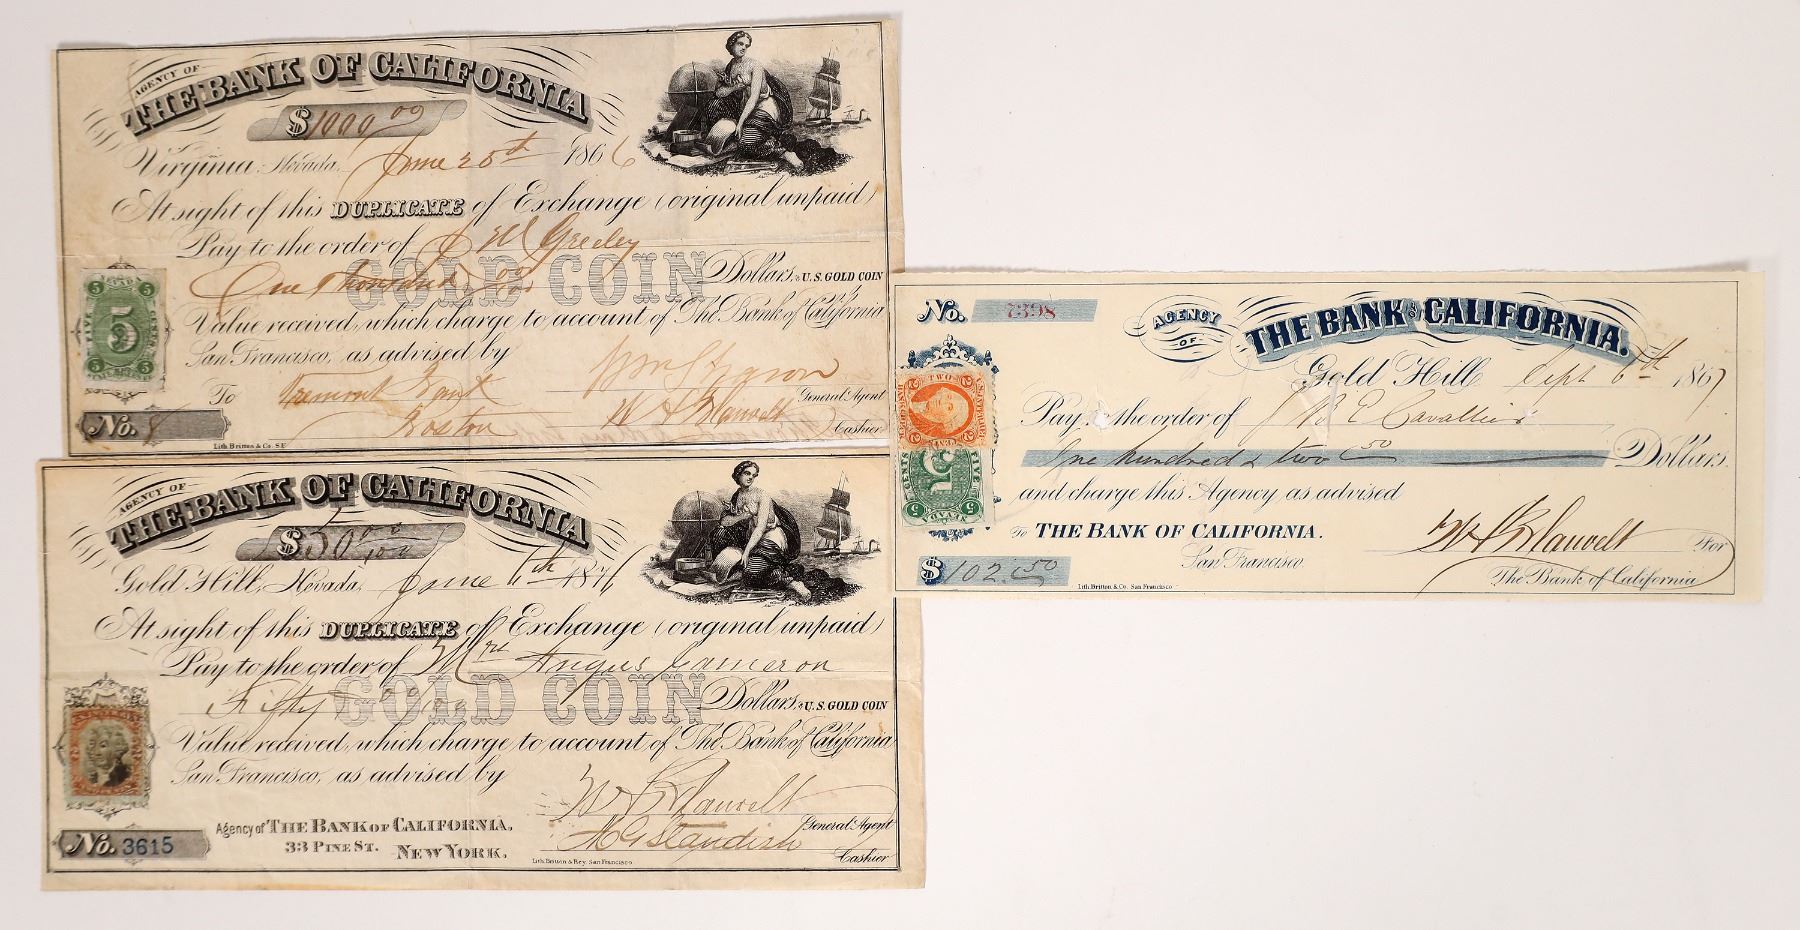 AGENCY OF
THE BANK OF CALIFORNIA
$1000.00
Virginia, Nevada, June 25th 1866
At sight of this DUPLICATE of Exchange (original unpaid)
Pay to the order of J W Greeley
GOLD COIN
One Thousand 00/100 Dollars, in U.S. GOLD COIN
Value received, which charge to account of The Bank of California
San Francisco, as advised by
To Tremont Bank
Boston
Wm Sharon
General Agent
W H Blauvelt
Cashier
5 NEVADA 5
FIVE 5 CENTS
5 5
No. 8
Lith. Britton & Co. S.F.
AGENCY OF
THE BANK OF CALIFORNIA
$50 00/100
Gold Hill, Nevada, June 6th 1876
At sight of this DUPLICATE of Exchange (original unpaid)
Pay to the order of Mrs Angus Cameron
GOLD COIN
Fifty & 00/100 Dollars, in U.S. GOLD COIN
Value received, which charge to account of The Bank of California
San Francisco, as advised by
W H Blauvelt
General Agent
Standish
Cashier
Agency of THE BANK OF CALIFORNIA,
33 PINE ST. NEW YORK.
No. 3615
Lith. Britton & Rey, San Francisco
No. 7398
AGENCY
OF
THE BANK OF CALIFORNIA.
Gold Hill Sept 6th 1867
Pay to the order of
One hundred & two 50 Dollars
and charge this Agency as advised
To THE BANK OF CALIFORNIA.
San Francisco.
W H Blauvelt For
The Bank of California
$102.50
Lith. Britton & Co. San Francisco
2 TWO 2
2 CENTS 2
FIVE 5 CENTS
5 NEVADA 5